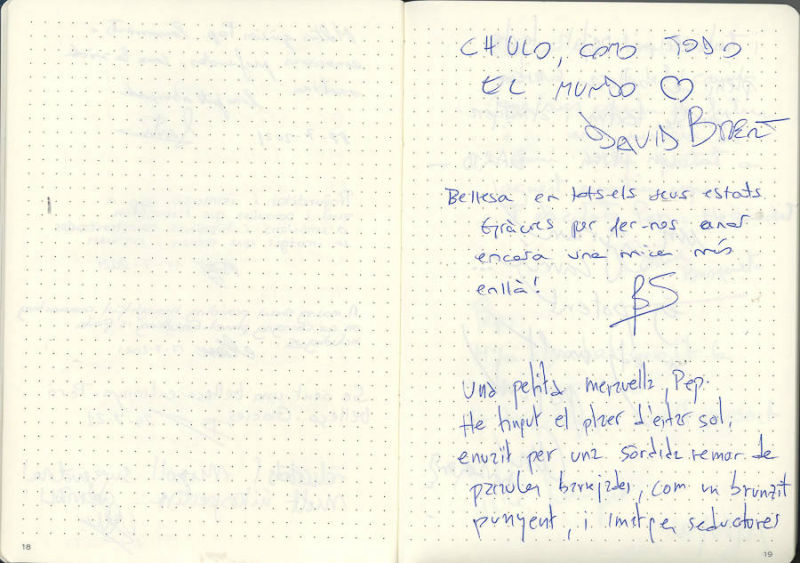 CHULO, COMO TODO
EL MUNDO ♡
DAVID BRENT
Bellesa en tots els seus estats.
Gràcies per fer-nos anar
encara una mica més
enllà!
BS
Una petita meravella, Pep.
He tingut el plaer d'estar sol,
envaït per una sòrdida remor de
paraules barrejades, com un brunzit
punyent, i imatges seductores
18
19